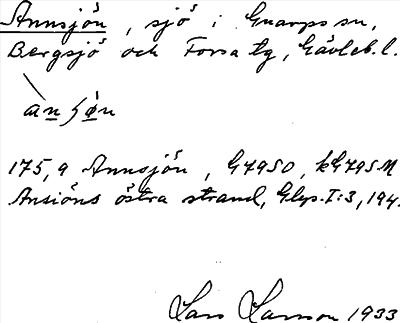 Annsjön, sjö i Gnarps sn,
Bergsjö och Forsa tg, Gävleb. l.
175,9 Annsjön, G79SO, kG79SM
Ansiöns östra strand, Glys. I:3, 194.
Lars Larsson 1933